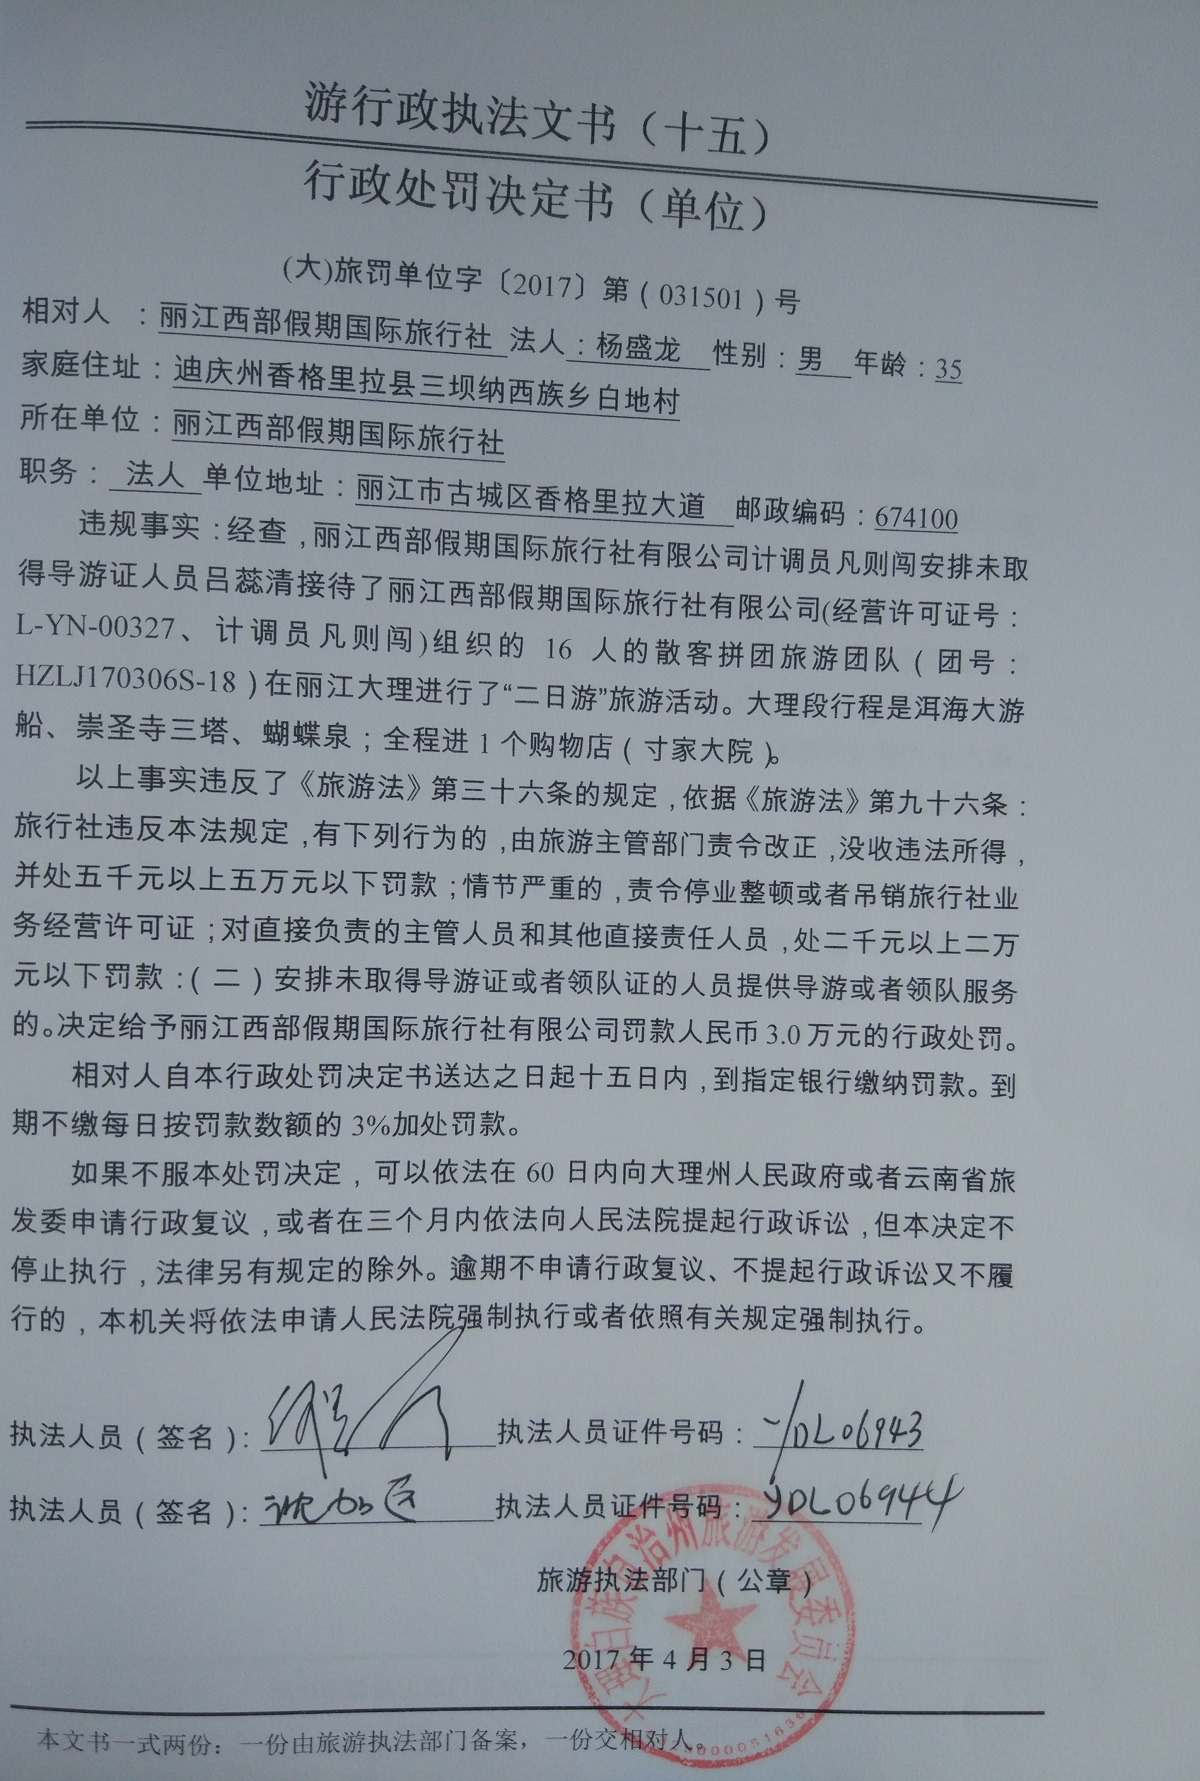 游行政执法文书（十五）
行政处罚决定书（单位）
(大)旅罚单位字〔2017〕第（031501）号
相对人 ：丽江西部假期国际旅行社 法人：杨盛龙 性别：男 年龄：35
家庭住址：迪庆州香格里拉县三坝纳西族乡白地村
所在单位：丽江西部假期国际旅行社
职务： 法人 单位地址：丽江市古城区香格里拉大道 邮政编码：674100
违规事实：经查，丽江西部假期国际旅行社有限公司计调员凡则闯安排未取
得导游证人员吕蕊清接待了丽江西部假期国际旅行社有限公司(经营许可证号：
L-YN-00327、计调员凡则闯)组织的 16 人的散客拼团旅游团队（团号：
HZLJ170306S-18）在丽江大理进行了“二日游”旅游活动。大理段行程是洱海大游
船、崇圣寺三塔、蝴蝶泉；全程进1个购物店（寸家大院）。
以上事实违反了《旅游法》第三十六条的规定，依据《旅游法》第九十六条：
旅行社违反本法规定，有下列行为的，由旅游主管部门责令改正，没收违法所得，
并处五千元以上五万元以下罚款；情节严重的，责令停业整顿或者吊销旅行社业
务经营许可证；对直接负责的主管人员和其他直接责任人员，处二千元以上二万
元以下罚款：（二）安排未取得导游证或者领队证的人员提供导游或者领队服务
的。决定给予丽江西部假期国际旅行社有限公司罚款人民币3.0万元的行政处罚。
相对人自本行政处罚决定书送达之日起十五日内，到指定银行缴纳罚款。到
期不缴每日按罚款数额的3%加处罚款。
如果不服本处罚决定，可以依法在60日内向大理州人民政府或者云南省旅
发委申请行政复议，或者在三个月内依法向人民法院提起行政诉讼，但本决定不
停止执行，法律另有规定的除外。逾期不申请行政复议、不提起行政诉讼又不履
行的，本机关将依法申请人民法院强制执行或者依照有关规定强制执行。
执法人员（签名）： 执法人员证件号码：YDL06943
执法人员（签名）： 执法人员证件号码：YDL06944
大理白族自治州旅游发展委员会
旅游执法部门（公章）
2017年4月3日
本文书一式两份：一份由旅游执法部门备案，一份交相对人。